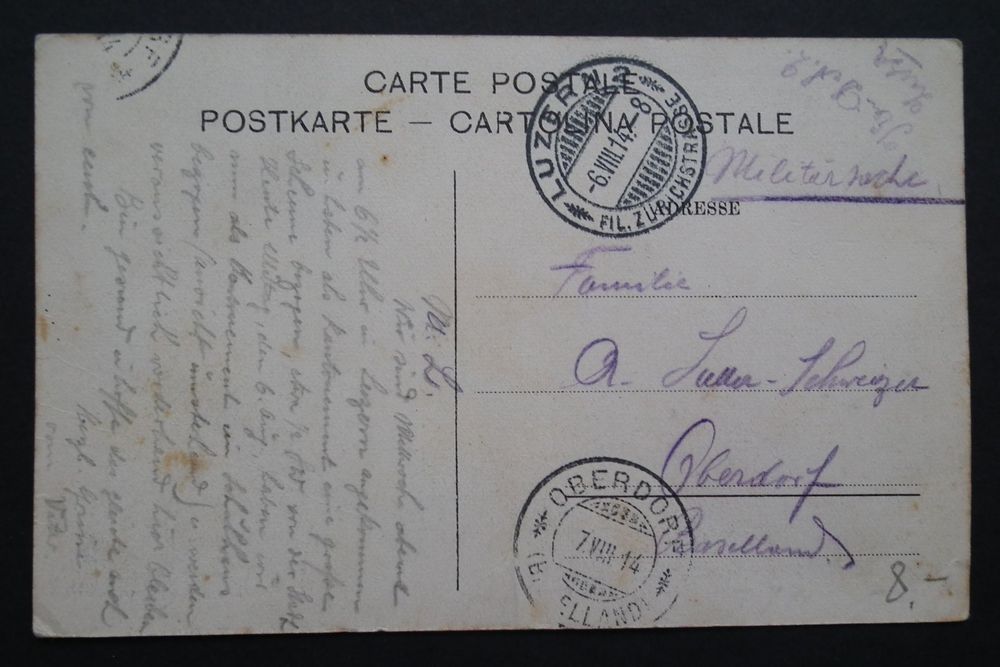 CARTE POSTALE
POSTKARTE – CARTOLINA POSTALE
LUZERN 2
-6.VIII.14.-8
FIL. ZÜRICHSTR.
Militärsache
ADRESSE
Familie
A. Suter-Schweizer
Oberdorf
Baselland
OBERDORF
7.VIII.14
(BASELLAND)
8.-
M. L.
Wir sind Mittwoch abend
am 6½ Uhr in Luzern angekommen
u. haben als Kantonnement eine große
bezogen, ca. ½ von der
Heute Mittag, den 6. Aug. haben wir
nun das Kantonnement im Schulhaus
bezogen u. werden
voraussichtlich vorderhand hier bleiben
Bin gesund u. hoffe das gleiche auch
von euch.
Herzl. Grüsse
vom